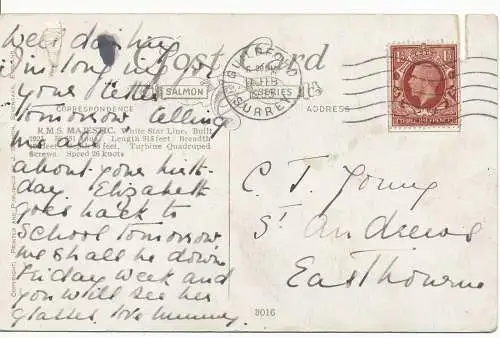 Well darling
Post Card
I'm longing for
your letter
SALMON
SERIES
GUILDFORD
SURREY
FEB
CORRESPONDENCE
ADDRESS
tomorrow telling
R.M.S. MAJESTIC. White Star Line, Built
me all
Length 915 feet Breadth
feet Turbine Quadruped
about your birth-
Screws Speed 25 knots
day. Elizabeth
goes back to
school tomorrow
we shall be down
Friday week and
you will see her
glasses love mummy.
C T Young
St Andrews
Eastbourne
3016